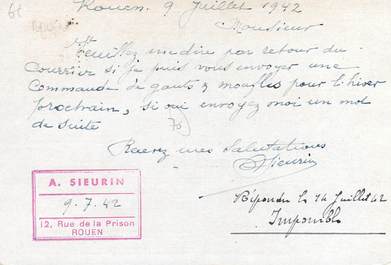 Rouen. 9 Juillet 1942
Monsieur
Veuillez me dire par retour du
Courrier si je puis vous envoyer une
Commande de gants & moufles pour l'hiver
prochain, si oui envoyez moi un mot
de suite
Recevez mes Salutations
ASieurin
A. SIEURIN
9.7.42
12, Rue de la Prison
ROUEN
Répondu le 14 Juillet 42
Impossible